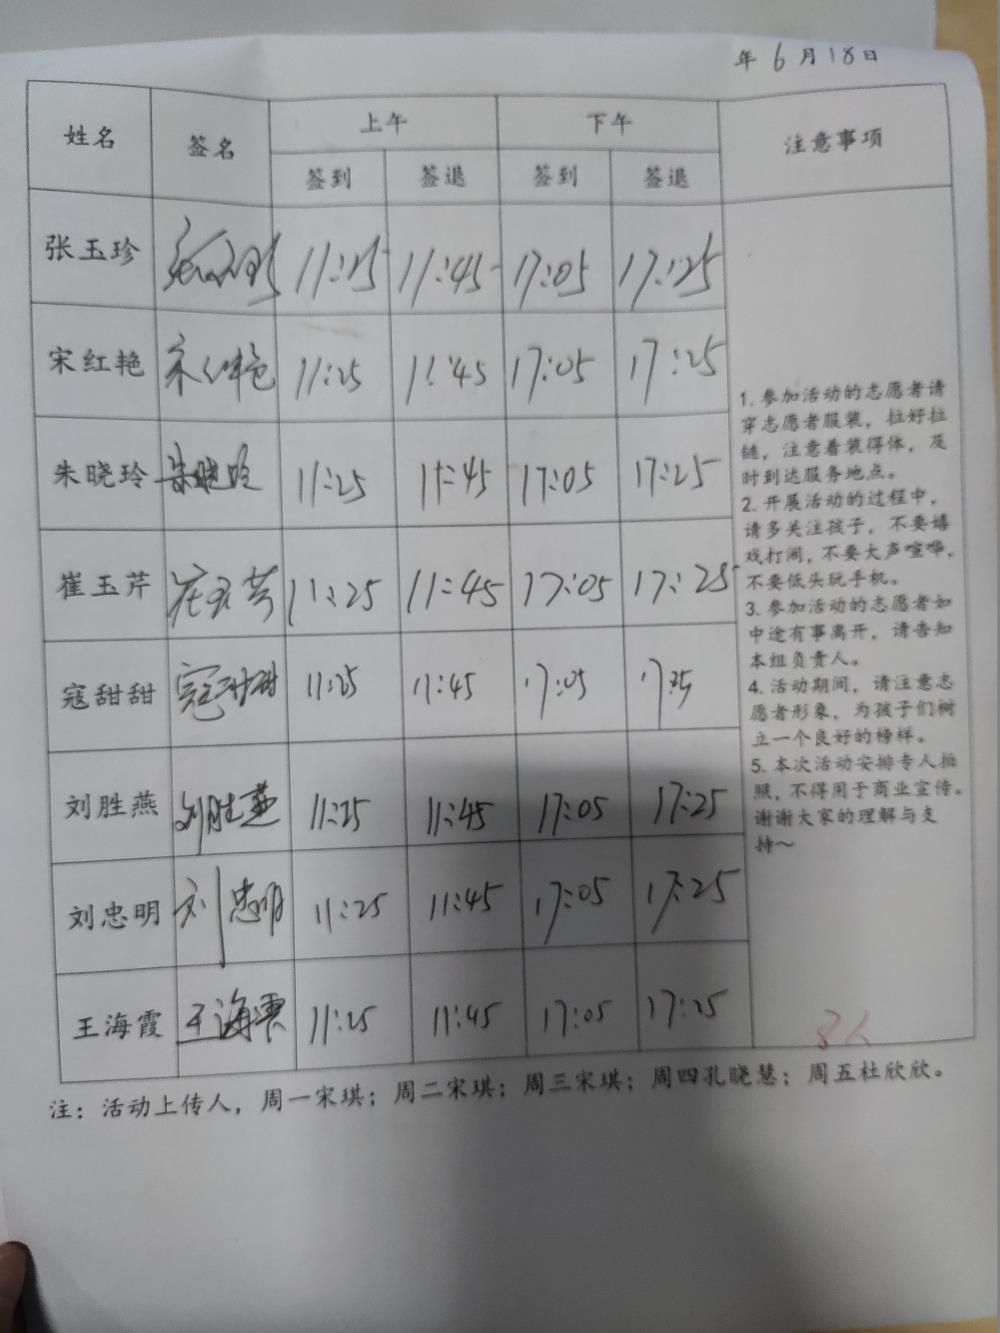 年 6 月 18 日
姓名 签名 上午 下午 注意事项
签到 签退 签到 签退
张玉珍 11:25 11:45 17:05 17:25
宋红艳 宋红艳 11:25 11:45 17:05 17:25
朱晓玲 朱晓玲 11:25 11:45 17:05 17:25
崔玉芹 崔玉芹 11:25 11:45 17:05 17:25
寇甜甜 寇甜甜 11:25 11:45 17:05 17:25
刘胜燕 刘胜燕 11:25 11:45 17:05 17:25
刘忠明 刘忠明 11:25 11:45 17:05 17:25
王海霞 王海霞 11:25 11:45 17:05 17:25
1. 参加活动的志愿者请
穿志愿者服装，拉好拉
链，注意着装得体，及
时到达服务地点。
2. 开展活动的过程中，
请多关注孩子，不要嬉
戏打闹，不要大声喧哗，
不要低头玩手机。
3. 参加活动的志愿者如
中途有事离开，请告知
本组负责人。
4. 活动期间，请注意志
愿者形象，为孩子们树
立一个良好的榜样。
5. 本次活动安排专人拍
照，不得用于商业宣传。
谢谢大家的理解与支
持～
8人
注：活动上传人，周一宋琪；周二宋琪；周三宋琪；周四孔晓慧；周五杜欣欣。